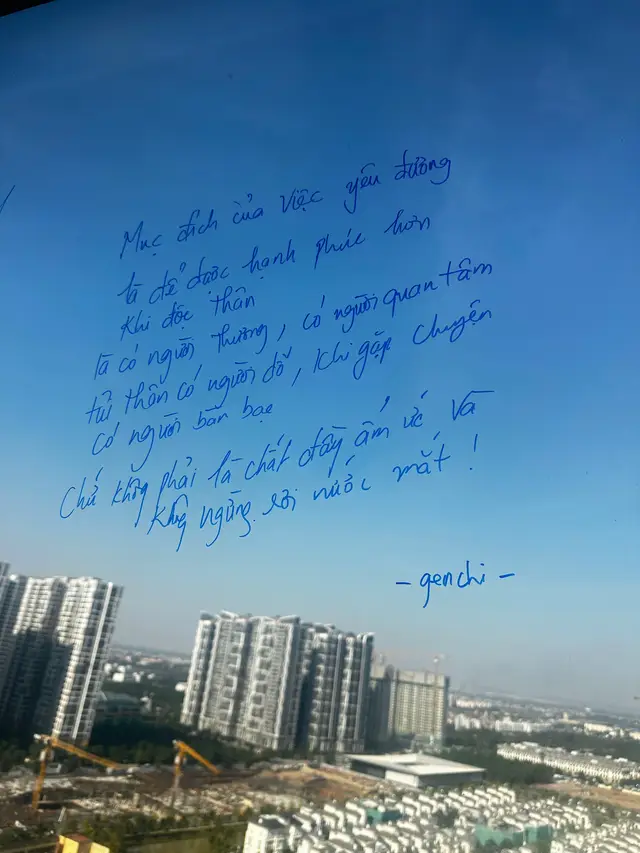 Mục đích của việc yêu đương
là để được hạnh phúc hơn
khi độc thân
là có người thương, có người quan tâm
tủi thân có người dỗ, khi gặp chuyện
có người bàn bạc
Chứ không phải là chất đầy ấm ức, và
không ngừng rơi nước mắt!
- genchi -